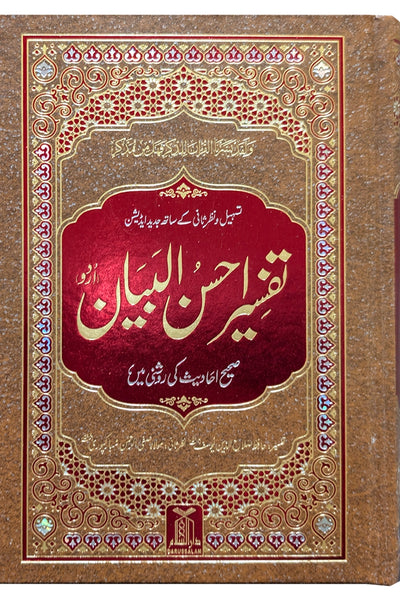 ولقد يسرنا القرآن للذكر فهل من مدكر
تسہیل و نظر ثانی کے ساتھ جدید ایڈیشن
تفسیر احسن البیان (اردو)
صحیح احادیث کی روشنی میں
تفسیر: حافظ صلاح الدین یوسف نظر ثانی: مولانا صفی الرحمن مبارکپوری
دارالسلام
DARUSSALAM